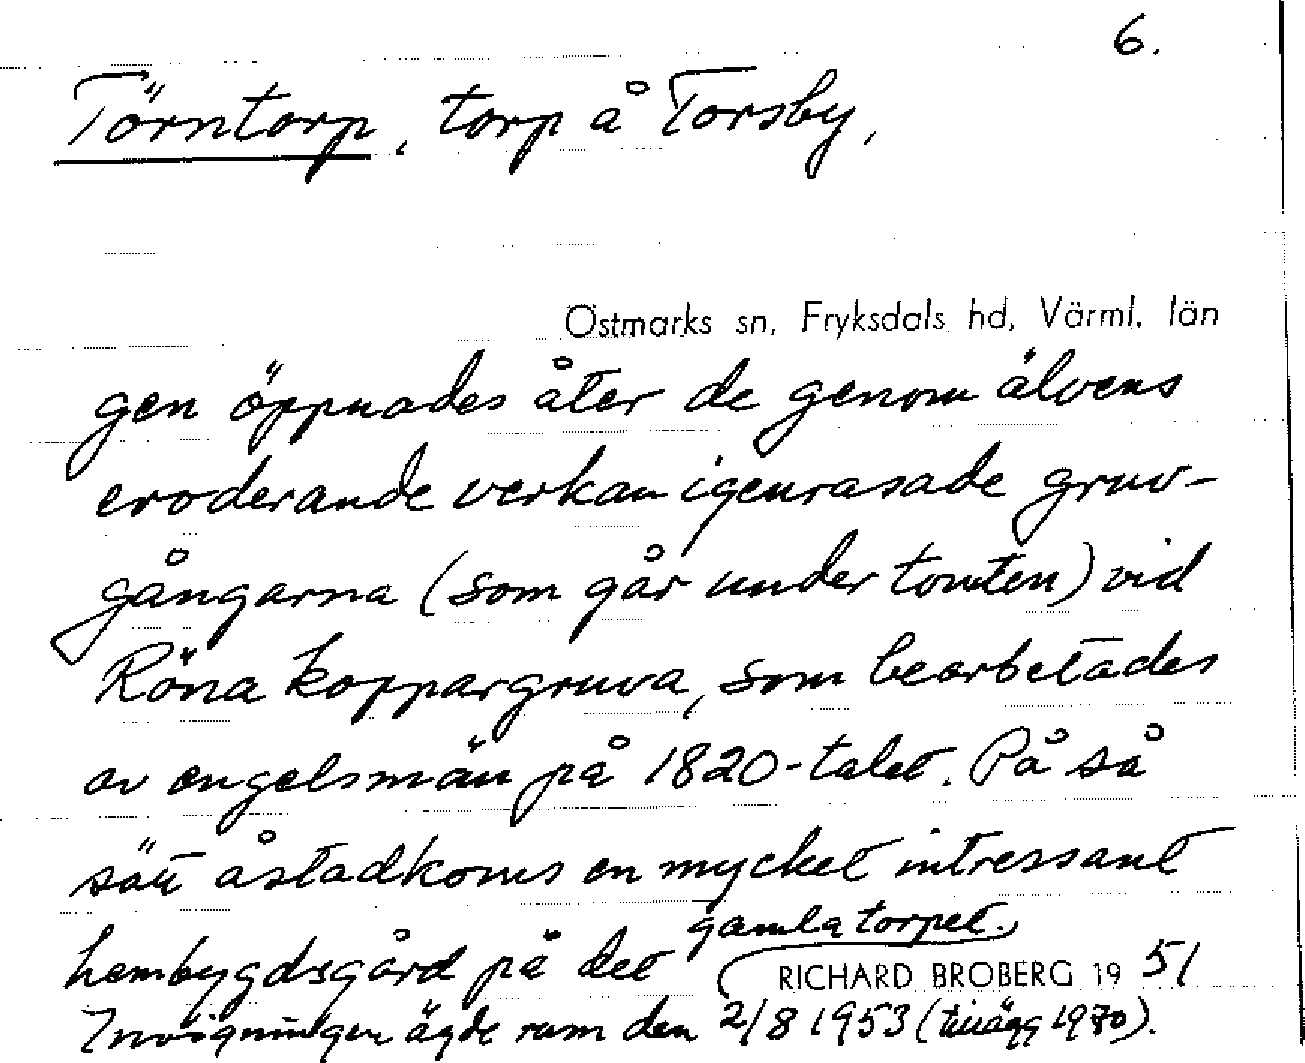 6.
Törntorp, torp å Torsby,
Östmarks sn, Fryksdals hd, Värml. län
gen öppnades åter de genom älvens
eroderande verkan igenrasade gruv-
gångarna (som går under tomten) vid
Röna koppargruva, som bearbetades
av engelsmän på 1820-talet. På så
sätt åstadkoms en mycket intressant
hembygdsgård på det gamla torpet.
RICHARD BROBERG 1951
Invigningen ägde rum den 2/8 1953 (tillägg 1970).